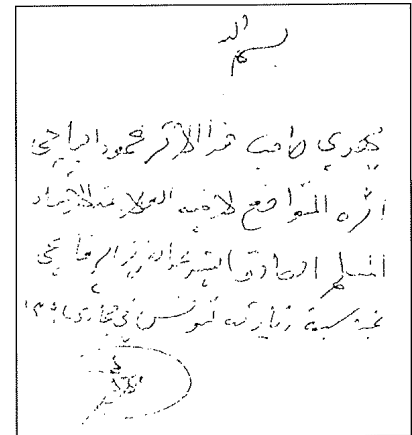 بسم الله
يهدي صاحب هذا الاثر محمود الباجي
اثره المتواضع لاخيه العلامة الاستاذ
المسلم الصادق السيد عبد العزيز الرفاعي
بمناسبة زيارته تونس في